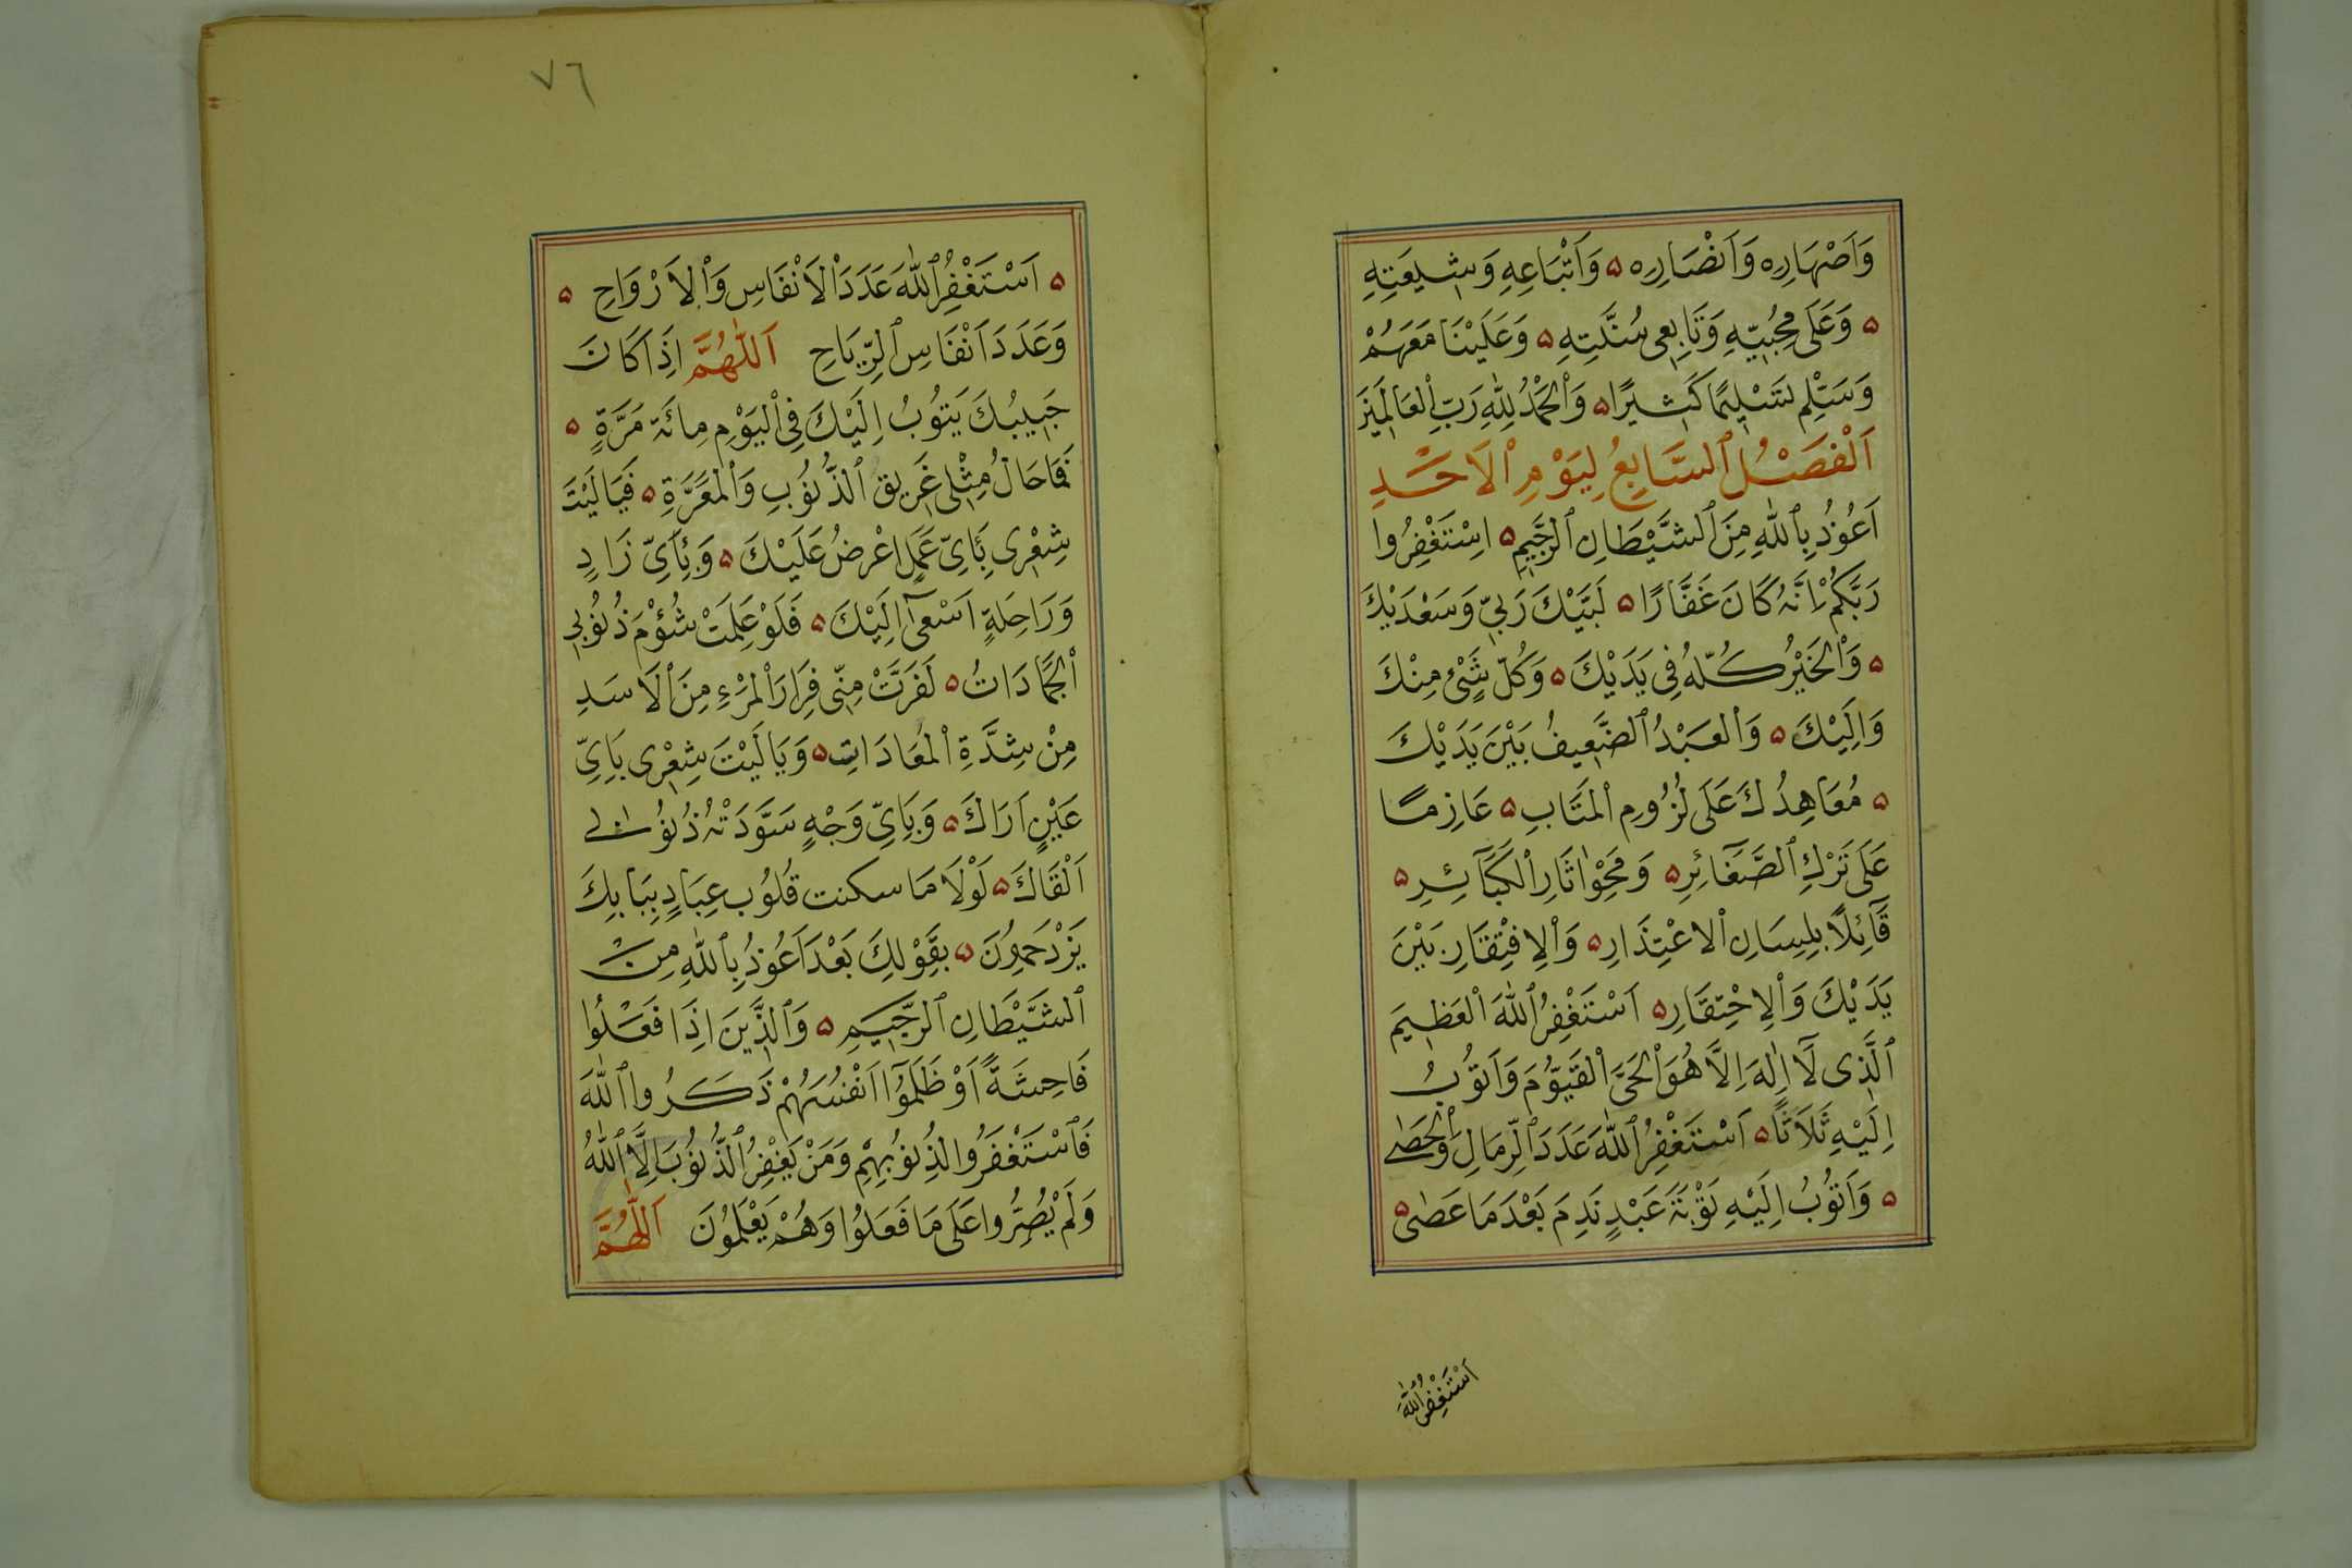 وَاَصْهَارِهِ وَاَنْصَارِهِ ۵ وَاَتْبَاعِهِ وَشِيعَتِهِ
۵ وَعَلَى مُحِبِّيهِ وَتَابِعِى سُنَّتِهِ ۵ وَعَلَيْنَا مَعَهُمْ
وَسَلِّم تَسْلِيمًا كَثِيرًا ۵ وَالْحَمْدُ لِلّٰهِ رَبِّ الْعَالَمِينَ
اَلْفَصْلُ السَّابِعُ لِيَوْمِ الْاَحَدِ
اَعُوذُ بِاللّٰهِ مِنَ الشَّيْطَانِ الرَّجِيمِ ۵ اِسْتَغْفِرُوا
رَبَّكُمْ اِنَّهُ كَانَ غَفَّارًا ۵ لَبَّيْكَ رَبِّي وَسَعْدَيْكَ
۵ وَالْخَيْرُ كُلُّهُ فِى يَدَيْكَ ۵ وَكُلُّ شَىْءٍ مِنْكَ
وَاِلَيْكَ ۵ وَالْعَبْدُ الضَّعِيفُ بَيْنَ يَدَيْكَ
۵ مُعَاهِدُكَ عَلَى لُزُومِ الْمَتَابِ ۵ عَازِمًا
عَلَى تَرْكِ الصَّغَآئِرِ ۵ وَمَحْوِ اٰثَارِ الْكَبَآئِرِ ۵
قَآئِلًا بِلِسَانِ الْاعْتِذَارِ ۵ وَالْاِفْتِقَارِ بَيْنَ
يَدَيْكَ وَالْاِحْتِقَارِ ۵ اَسْتَغْفِرُ اللّٰهَ الْعَظِيمَ
الَّذِى لَآ اِلٰهَ اِلَّا هُوَ الْحَىَّ الْقَيُّومَ وَاَتُوبُ
اِلَيْهِ ثَلَاثًا ۵ اَسْتَغْفِرُ اللّٰهَ عَدَدَ الرِّمَالِ وَالْحَصٰى
۵ وَاَتُوبُ اِلَيْهِ تَوْبَةَ عَبْدٍ نَدِمَ بَعْدَ مَا عَصٰى ۵
اَسْتَغْفِرُ اللّٰهَ
٧٦
۵ اَسْتَغْفِرُ اللّٰهَ عَدَدَ الْاَنْفَاسِ وَالْاَرْوَاحِ ۵
وَعَدَدَ اَنْفَاسِ الرِّيَاحِ اَللّٰهُمَّ اِذَا كَانَ
حَبِيبُكَ يَتُوبُ اِلَيْكَ فِى الْيَوْمِ مِائَةَ مَرَّةٍ ۵
فَمَا حَالُ مِثْلِى غَرِيقِ الذُّنُوبِ وَالْمَعَرَّةِ ۵ فَيَا لَيْتَ
شِعْرِى بِاَىِّ عَمَلٍ اعْرِضُ عَلَيْكَ ۵ وَبِاَىِّ زَادٍ
وَرَاحِلَةٍ اَسْعٰى اِلَيْكَ ۵ فَلَوْ عَلِمَتْ شُؤْمَ ذُنُوبِى
الْجَمَادَاتُ ۵ لَفَرَّتْ مِنِّى فِرَارَ الْمَرْءِ مِنَ الْاَسَدِ
مِنْ شِدَّةِ الْمُعَادَاتِ ۵ وَيَا لَيْتَ شِعْرِى بِاَىِّ
عَيْنٍ اَرَاكَ ۵ وَبِاَىِّ وَجْهٍ سَوَّدَتْهُ ذُنُوبِى
اَلْقَاكَ ۵ لَوْلَا مَا سكنت قُلُوب عِبَادٍ بِبَابِكَ
يَزْدَحِمُونَ ۵ بِقَوْلِكَ بَعْدَ اَعُوذُ بِاللّٰهِ مِنَ
الشَّيْطَانِ الرَّجِيمِ ۵ وَالَّذِينَ اِذَا فَعَلُوا
فَاحِشَةً اَوْ ظَلَمُوٓا اَنْفُسَهُمْ ذَكَرُوا اللّٰهَ
فَاسْتَغْفَرُوا لِذُنُوبِهِمْ وَمَنْ يَغْفِرُ الذُّنُوبَ اِلَّا اللّٰهُ
وَلَمْ يُصِرُّوا عَلَى مَا فَعَلُوا وَهُمْ يَعْلَمُونَ اَللّٰهُمَّ